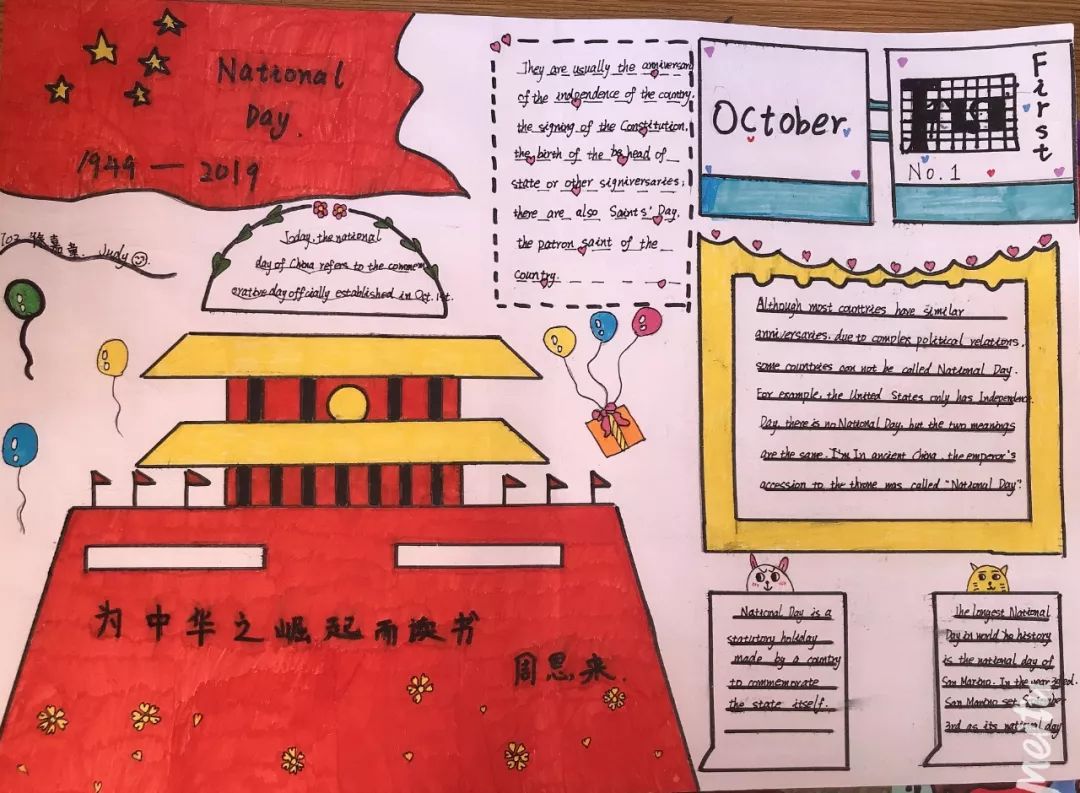 National
Day.
1949 — 2019
They are usually the anniversary
of the independence of the country.
the signing of the Constitution.
the birth of the be head of
state or other signiversaries;
there are also Saints' Day.
the patron saint of the
country.
October
First
No. 1
Judy
Today, the national
day of China refers to the commem
orative day officially established in Oct. 1st.
Although most countries have similar
anniversaries, due to complex political relations,
some countries can not be called National Day.
For example, the United States only has Independence
Day, there is no National Day, but the two meanings
are the same. I'm In ancient China, the emperor's
accession to the throne was called "National Day"
为中华之崛起而读书
周恩来.
National Day is a
statutory holiday
made by a country
to commemorate
the state itself.
The longest National
Day in world he history
is the national day of
San Marino. In the year
San Marino set
3rd as its national day